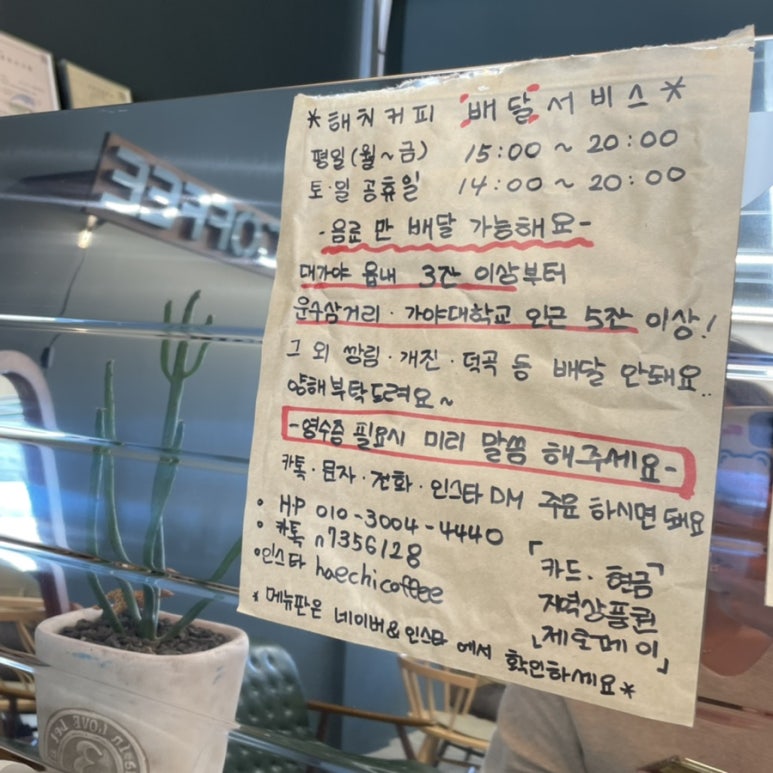 *해치커피 배달서비스*
평일(월~금) 15:00 ~ 20:00
토·일 공휴일 14:00 ~ 20:00
-음료 만 배달 가능해요-
대가야 읍내 3잔 이상부터
운수삼거리·가야대학교 인근 5잔 이상!
그 외 쌍림·개진·덕곡 등 배달 안돼요..
양해부탁드려요~
-영수증 필요시 미리 말씀 해주세요-
카톡·문자·전화·인스타 DM 주문 하시면 돼요
• HP 010-3004-4440
• 카톡 n7356128
•인스타 haechicoffee
「카드·현금
지역상품권
제로페이」
* 메뉴판은 네이버&인스타 에서 확인하세요*
COFFEE